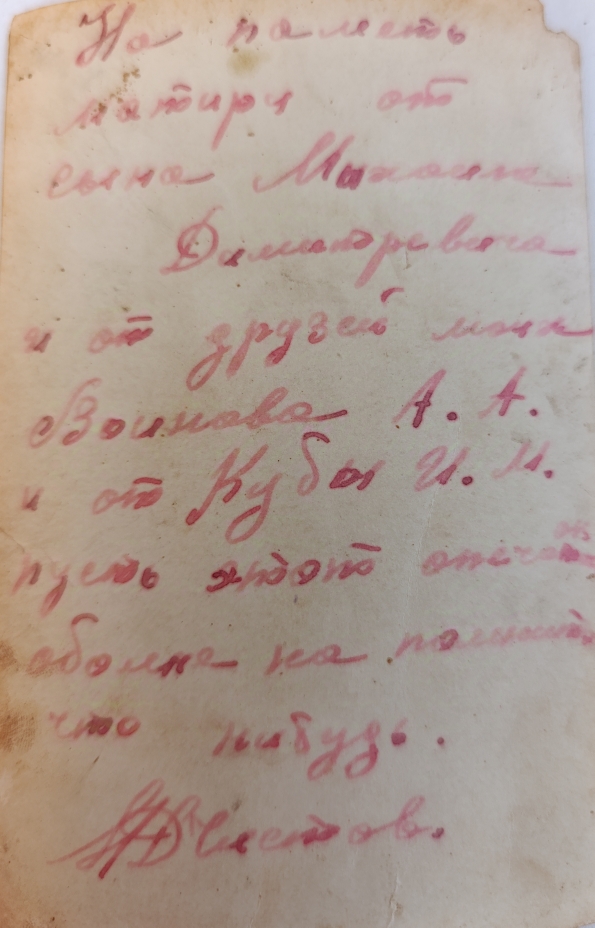 На паметь
матири от
сына Михаила
Димитревича
и от друзей моих
Воинова А. А.
и от Кубы И. И.
пусть этот опечаток
обомне на помнит
что нибудь.
Чистов.